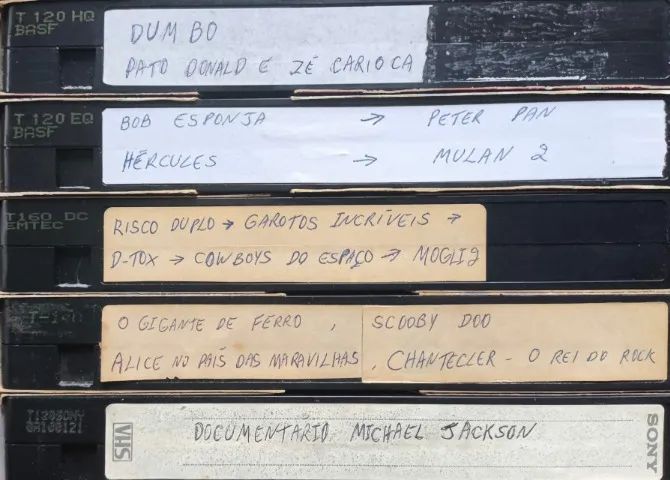 T 120 HQ
BASF
DUMBO
PATO DONALD E ZÉ CARIOCA
T 120 EQ
BASF
BOB ESPONJA → PETER PAN
HÉRCULES → MULAN 2
T160 DC
EMTEC
RISCO DUPLO → GAROTOS INCRÍVEIS →
D-TOX → COWBOYS DO ESPAÇO → MOGLI 2
O GIGANTE DE FERRO , SCOOBY DOO
ALICE NO PAÍS DAS MARAVILHAS , CHANTECLER - O REI DO ROCK
T120SONY
VHS
DOCUMENTÁRIO MICHAEL JACKSON
SONY